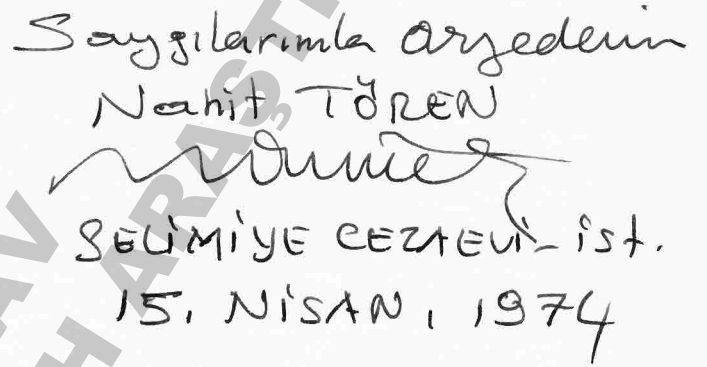 Saygılarımla arzederim
Nahit TÖREN
SELİMİYE CEZAEVİ - İST.
15. NİSAN. 1974